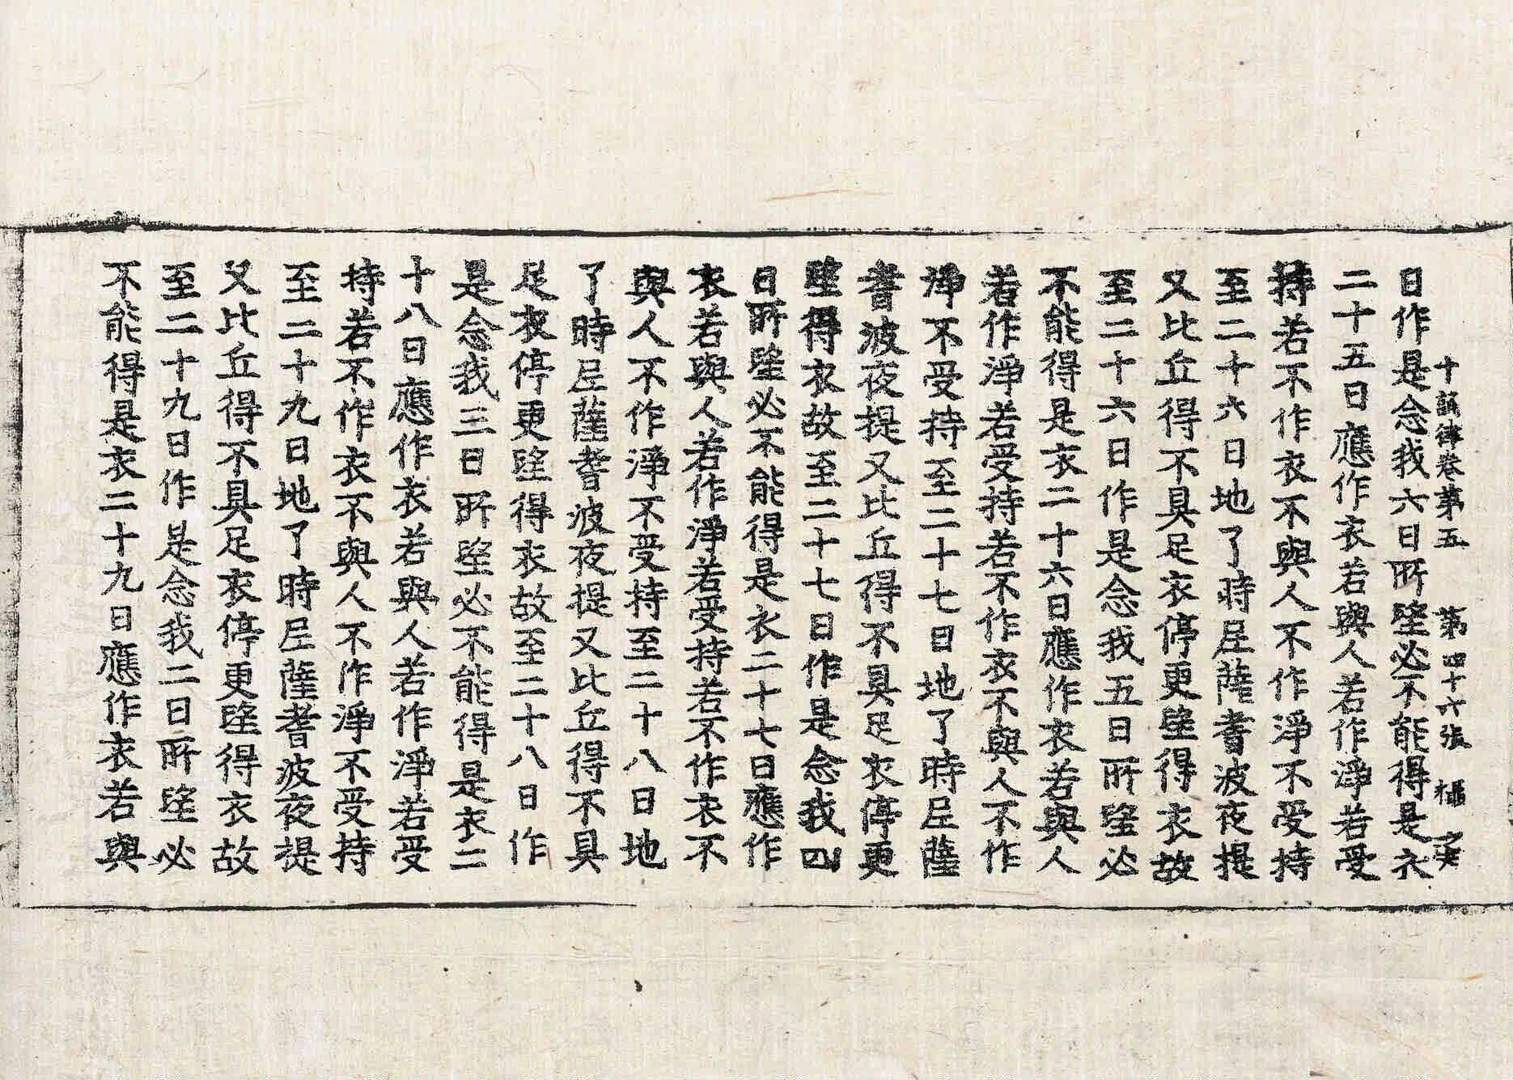 十誦律卷第五 第四十六張 攝
日作是念我六日所望必不能得是衣
二十五日應作衣若與人若作淨若受
持若不作衣不與人不作淨不受持
至二十六日地了時尼薩耆波夜提
又比丘得不具足衣停更望得衣故
至二十六日作是念我五日所望必
不能得是衣二十六日應作衣若與人
若作淨若受持若不作衣不與人不作
淨不受持至二十七日地了時尼薩
耆波夜提又比丘得不具足衣停更
望得衣故至二十七日作是念我四
日所望必不能得是衣二十七日應作
衣若與人若作淨若受持若不作衣不
與人不作淨不受持至二十八日地
了時尼薩耆波夜提又比丘得不具
足衣停更望得衣故至二十八日作
是念我三日所望必不能得是衣二
十八日應作衣若與人若作淨若受
持若不作衣不與人不作淨不受持
至二十九日地了時尼薩耆波夜提
又比丘得不具足衣停更望得衣故
至二十九日作是念我二日所望必
不能得是衣二十九日應作衣若與